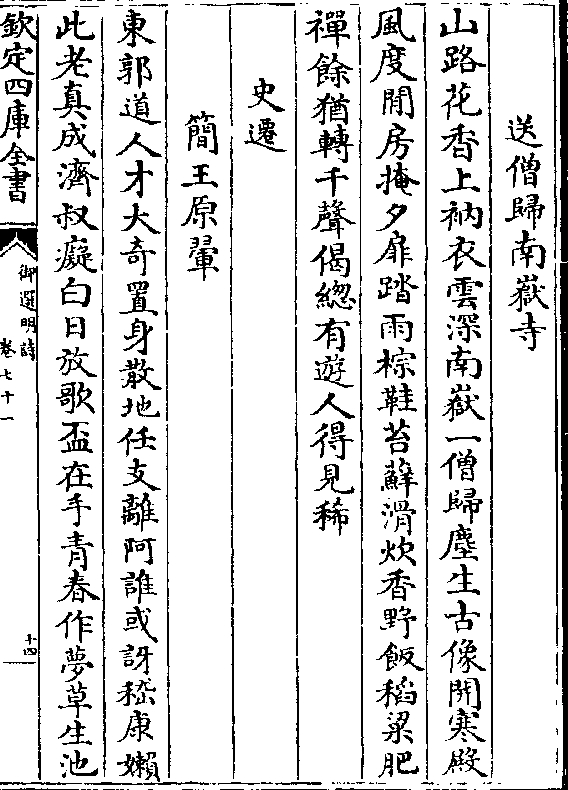 送僧歸南嶽寺
山路花香上衲衣雲深南嶽一僧歸塵生古像開寒殿
風度閒房掩夕扉踏雨棕鞋苔蘚滑炊香野飯稻粱肥
禪餘猶轉千聲偈總有遊人得見稀
史遷
簡王原翬
東郭道人才大奇置身散地任支離阿誰或訝嵇康嬾
此老真成濟叔癡白日放歌盃在手青春作夢草生池
欽定四庫全書
御選明詩
卷七十一
十四